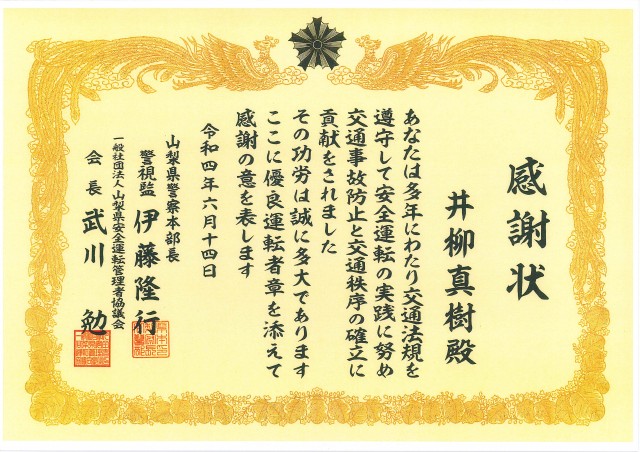 感謝状
井柳真樹殿
あなたは多年にわたり交通法規を
遵守して安全運転の実践に努め
交通事故防止と交通秩序の確立に
貢献をされました
その功労は誠に多大であります
ここに優良運転者章を添えて
感謝の意を表します
令和四年六月十四日
山梨県警察本部長
警視監 伊藤隆行
一般社団法人山梨県安全運転管理者協議会
会長 武川勉